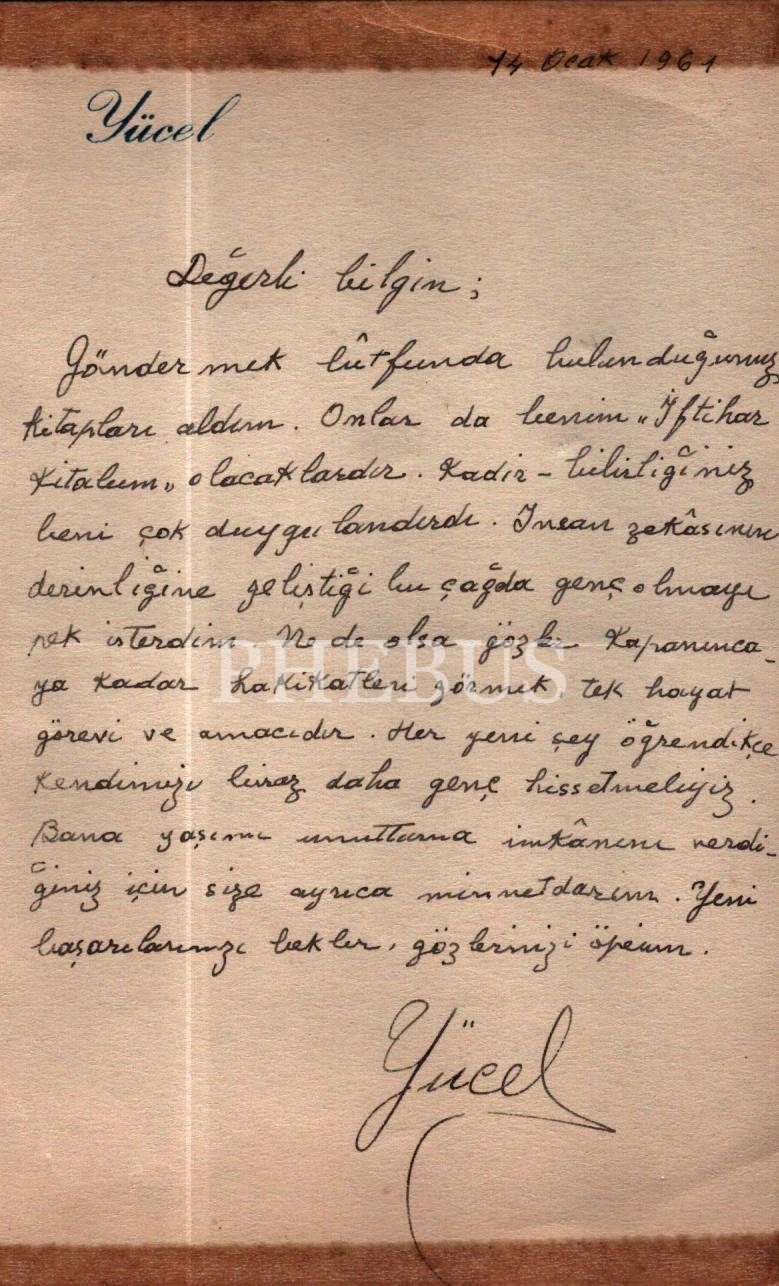 14 Ocak 1961
Yücel
Değerli bilgin;
Göndermek lûtfunda bulunduğunuz
kitapları aldım. Onlar da benim „İftihar
Kitabım„ olacaklardır. Kadir-bilirliğiniz
beni çok duygulandırdı. İnsan zekâsının
derinliğine geliştiği bu çağda genç olmayı
pek isterdim. Ne de olsa gözler kapanınca-
ya kadar hakikatleri görmek, tek hayat
görevi ve amacıdır. Her yeni şey öğrendikçe
kendimizi biraz daha genç hissetmeliyiz.
Bana yaşımı unutturma imkânını verdi-
ğiniz için size ayrıca minnetdarım. Yeni
başarılarınızı bekler, gözlerinizi öperim.
Yücel
PHEBUS